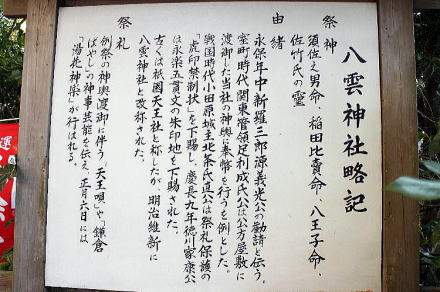 八雲神社略記
祭神
須佐之男命、稲田比賣命、八王子命、
佐竹氏の霊
由緒
永保年中新羅三郎源義光公の勧請と伝う。
室町時代関東管領足利成氏公は公方屋敷に
渡御した当社の神輿に奉幣を行うを例とした。
戦国時代小田原城主北条氏直公は祭礼保護の
「虎印禁制状」を下賜し、慶長九年徳川家康公
は永楽五貫文の朱印地を下賜された。
古くは祇園天王社と称したが、明治維新に
八雲神社と改称された。
祭礼
例祭の神輿渡御に伴う「天王唄」や「鎌倉
ばやし」の神事芸能を伝え、正月六日には
「湯花神楽」が行はれる。
運